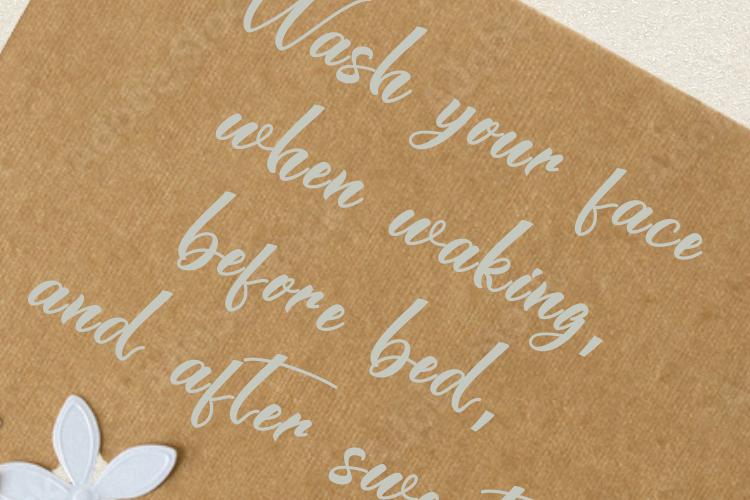 Wash your face
when waking,
before bed,
and after